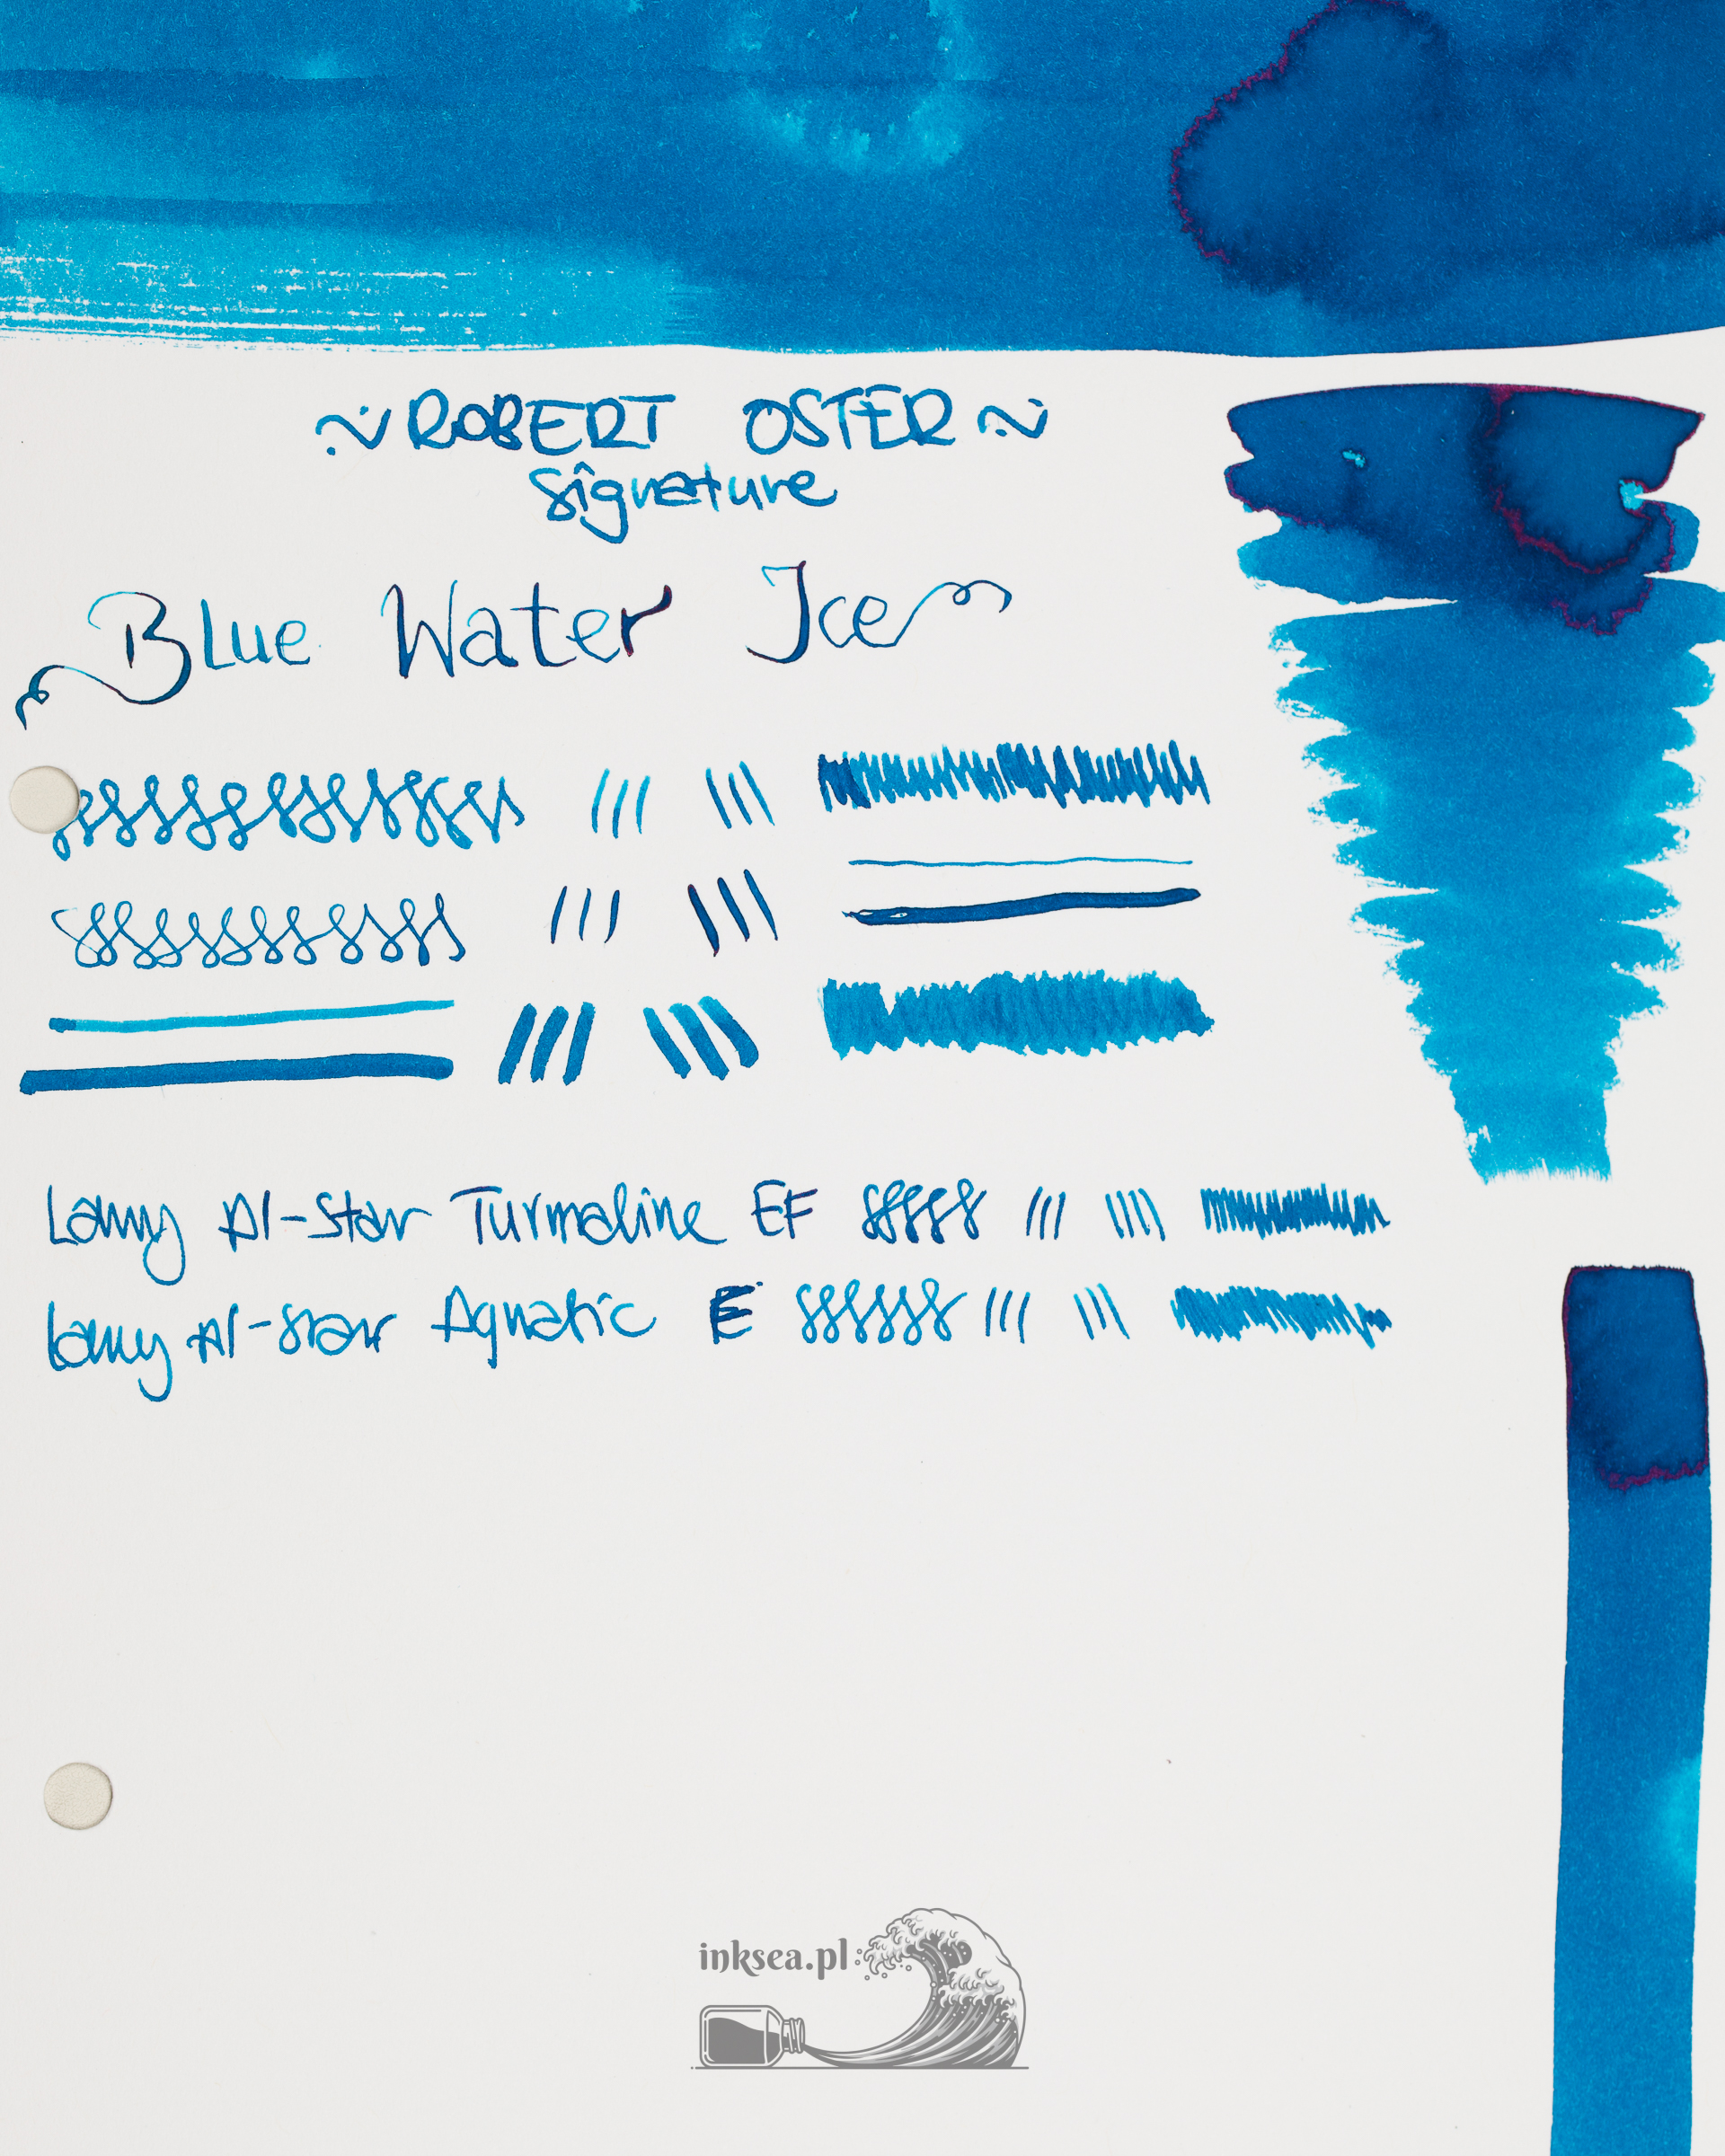 ~ ROBERT OSTER ~
Signature
Blue Water Ice
Lamy Al-Star Turmaline EF
Lamy Al-Star Aquatic E
inksea.pl